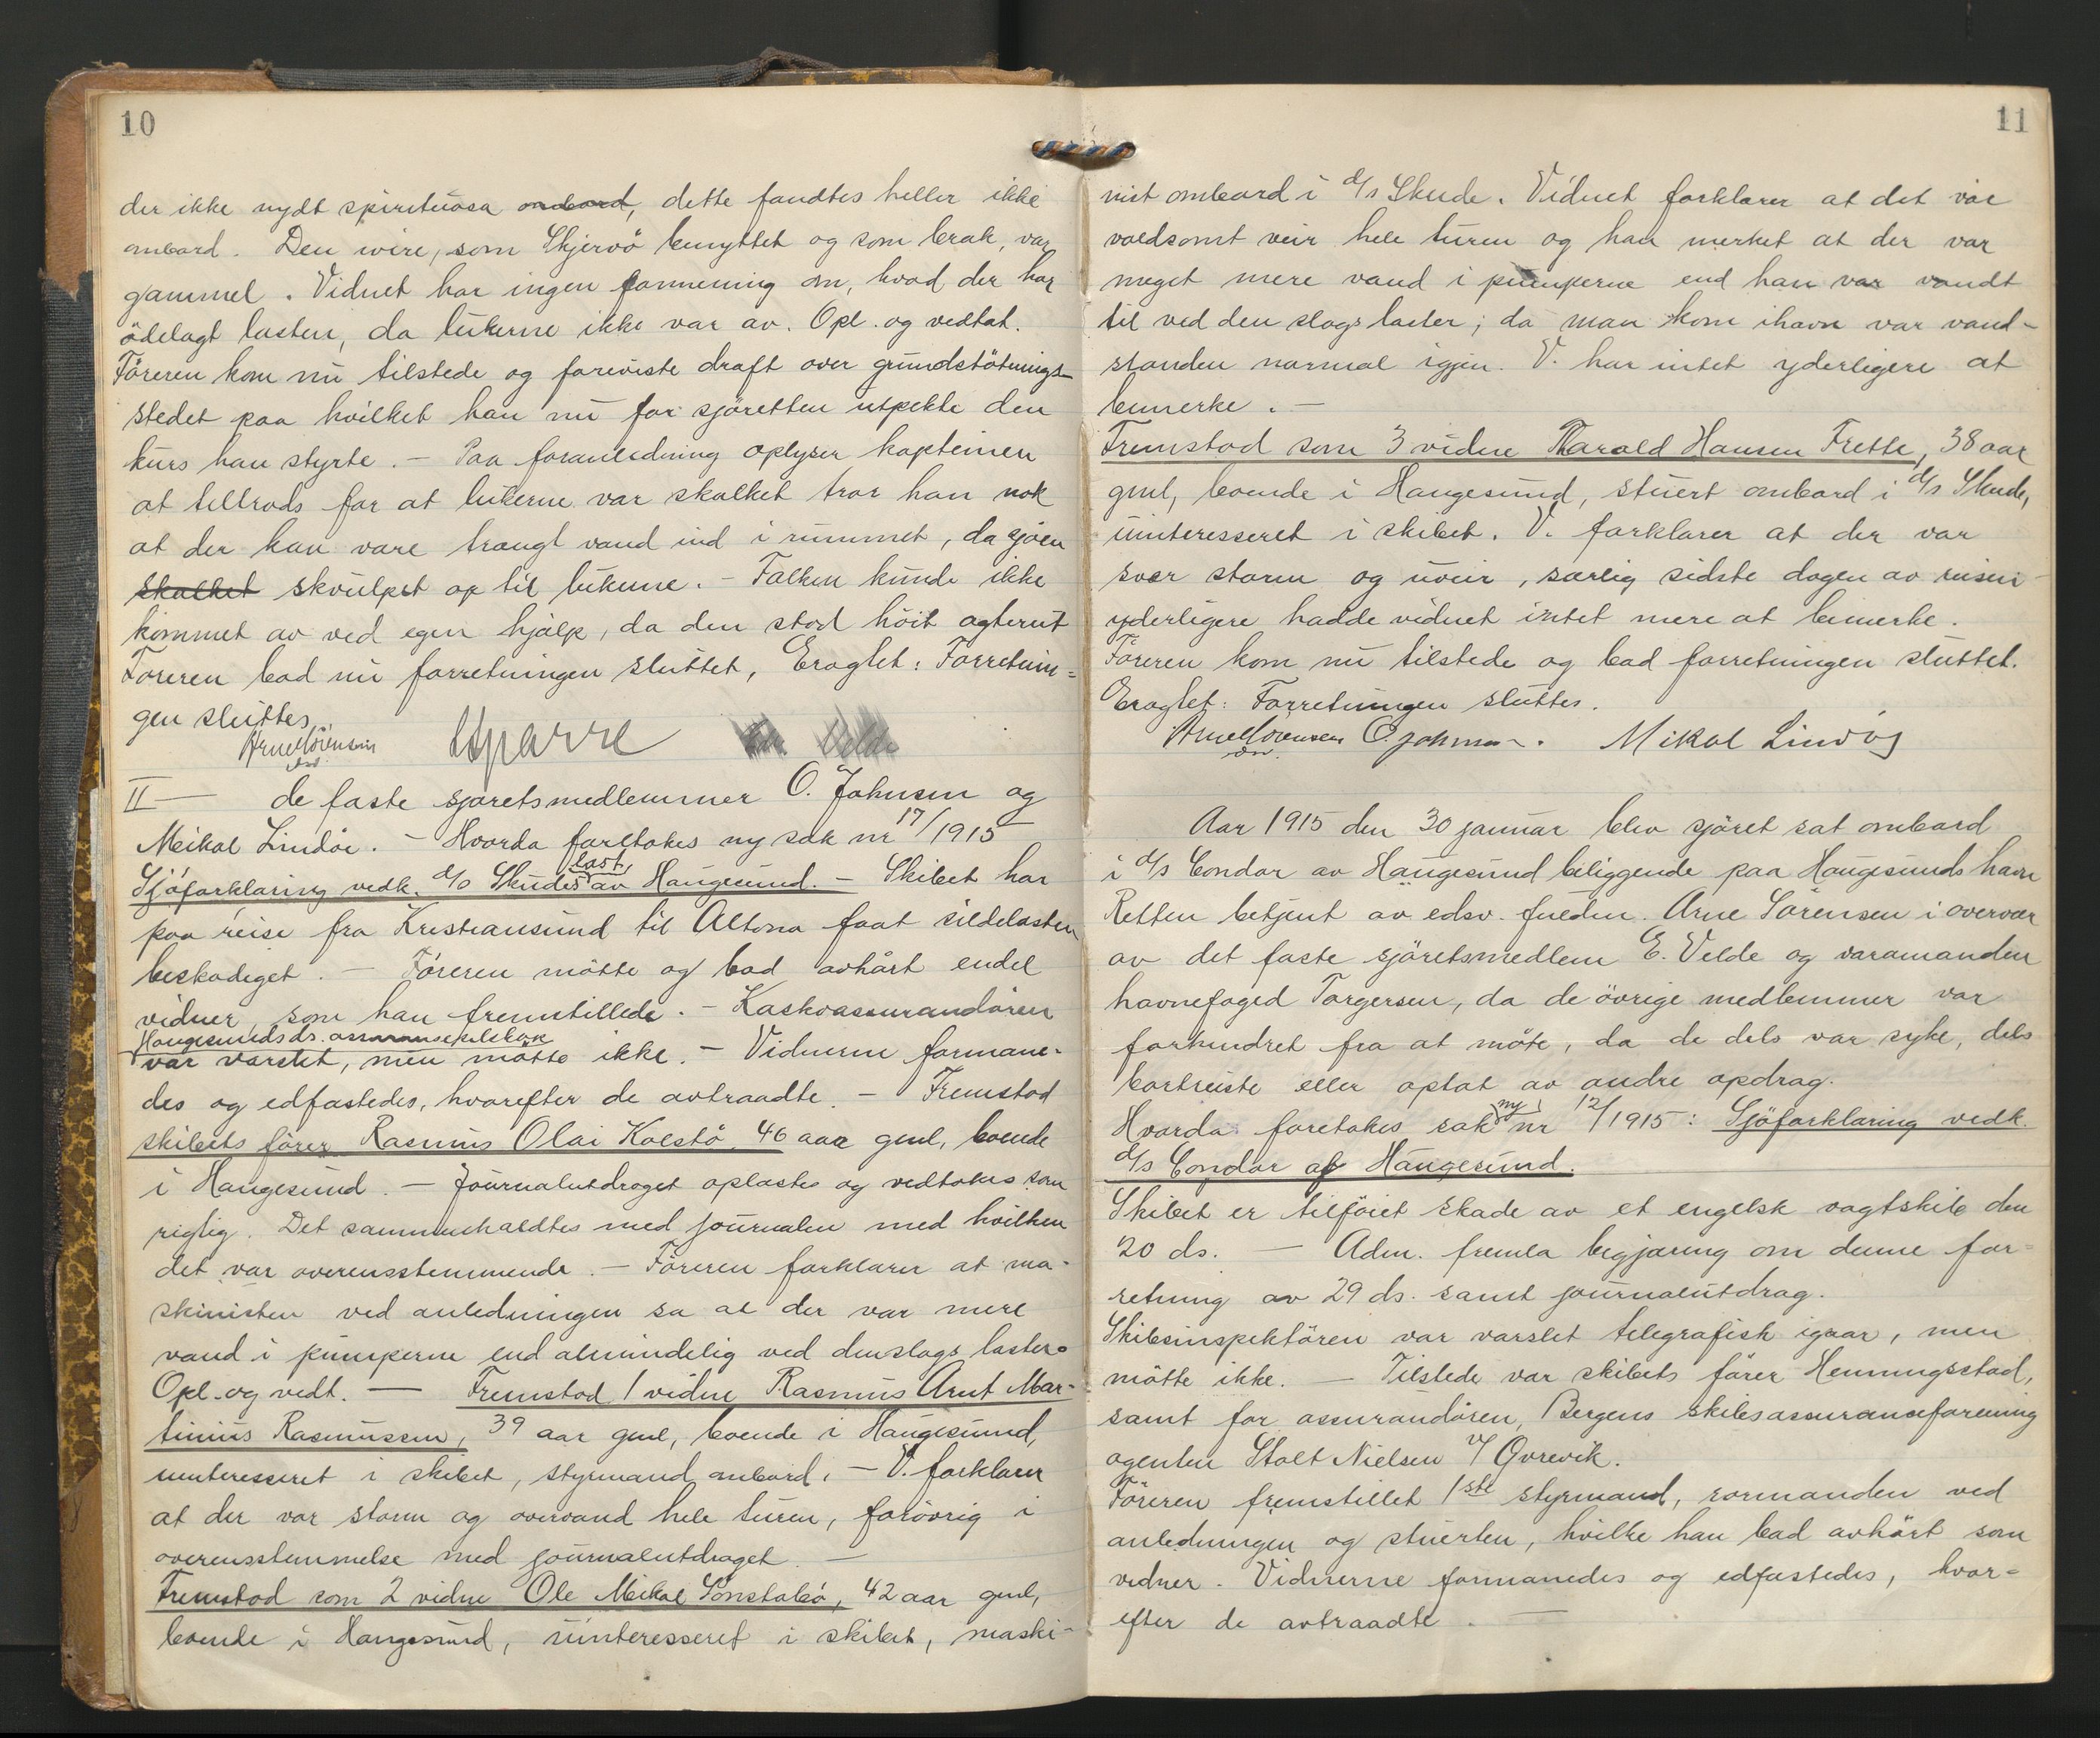 10
der ikke nydt spirituosa ombord, dette fandtes heller ikke
ombord. Den wire, som Skjervö benyttet og som brak, var
gammel. Vidnet har ingen formening om, hvad der har
ödelagt lasten, da lukerne ikke var av. Opl. og vedtat.
Föreren kom nu tilstede og foreviste draft over grundstötnings-
stedet paa hvilket han nu for sjöretten utpekte den
kurs han styrte. — Paa foranledning oplyser kapteinen
at tiltrods for at lukerne var skalket tror han nok
at der kan være trængt vand ind i rummet, da sjöen
skalket skvulpet op til lukerne. — Falken kunde ikke
kommet av ved egen hjælp, da den stod höit agterut
Föreren bad nu forretningen sluttet, Eragtet: Forretnin=
gen sluttes.
Arne Sörensen Sparre E. Velde
II — de faste sjöretsmedlemmer O. Johnsen og
Meikal Lindöe. — Hvorda foretokes ny sak nr 17/1915
Sjöforklaring vedk. d/s Skudes last av Haugesund. — Skibet har
paa reise fra Kristiansund til Altona faat sildelasten
beskadiget. — Föreren mötte og bad avhört endel
vidner som han fremstillede. — Kaskoassurandören
Haugesunds ds. assuranseselskap
var varslet, men mötte ikke. — Vidnerne formane-
des og edfæstedes, hvorefter de avtraadte. — Fremstod
skibets förer Rasmus Olai Kolstö 46 aar gml, boende
i Haugesund. — Journalutdraget oplæstes og vedtokes som
rigtig. Det sammenholdtes med journalen med hvilken
det var overensstemmende. — Föreren forklarer at ma-
skinisten ved anledningen sa at der var mere
vand i pumperne end almindelig ved denslags laster.
Opl. og vedt. — Fremstod 1 vidne Rasmus Arnt Mar-
tinius Rasmussen, 39 aar gml, boende i Haugesund,
uinteresseret i skibet, styrmand ombord. — V. forklarer
at der var storm og overvand hele turen, forövrig i
overensstemmelse med journalutdraget. —
Fremstod som 2 vidne Ole Meikal Sönstabö, 42 aar gml,
boende i Haugesund, uinteresseret i skibet, maski-
11
nist ombord i d/s Skude. Vidnet forklarer at det var
voldsomt veir hele turen og han merket at der var
meget mere vand i pumperne end han var vandt
til ved den slags laster; da man kom ihavn var vand-
standen normal igjen. V. har intet yderligere at
bemerke. —
Fremstod som 3 vidne Harald Hansen Frette, 38 aar
gml, boende i Haugesund, stuert ombord i d/s Skude,
uinteresseret i skibet. V. forklarer at der var
svær storm og uveir, særlig sidste dagen av reisen
yderligere hadde vidnet intet mere at bemerke.
Föreren kom nu tilstede og bad forretningen sluttet.
Eragtet: Forretningen sluttes.
Arne Sörensen O. Johnsen. Mikal Lindöe
Aar 1915 den 30 januar blev sjöret sat ombord
i d/s Condor av Haugesund beliggende paa Haugesunds havn
Retten betjent av edsv. fuldm. Arne Sörensen i overvær
av det faste sjöretsmedlem E. Velde og varamanden
havnefoged Torgersen, da de övrige medlemmer var
forhindret fra at möte, da de dels var syke, dels
bortreiste eller optat av andre opdrag.
Hvorda foretokes ny sak nr 12/1915: Sjöforklaring vedk.
d/s Condor af Haugesund.
Skibet er tilföiet skade av et engelsk vagtskib den
20 ds. — Adm. fremla begjæring om denne for=
retning av 29 ds. samt journalutdrag.
Skibsinspektören var varslet telegrafisk igaar, men
mötte ikke. — Tilstede var skibets förer Henningsstad,
samt for assurandören, Bergens skibsassuranceforening
agenten Stolt Nielsen v/ Qvrevik.
Föreren fremstillet 1ste styrmand, rormanden ved
anledningen og stuerten, hvilke han bad avhört som
vidner. Vidnerne formanedes og edfæstedes, hvor=
efter de avtraadte. —